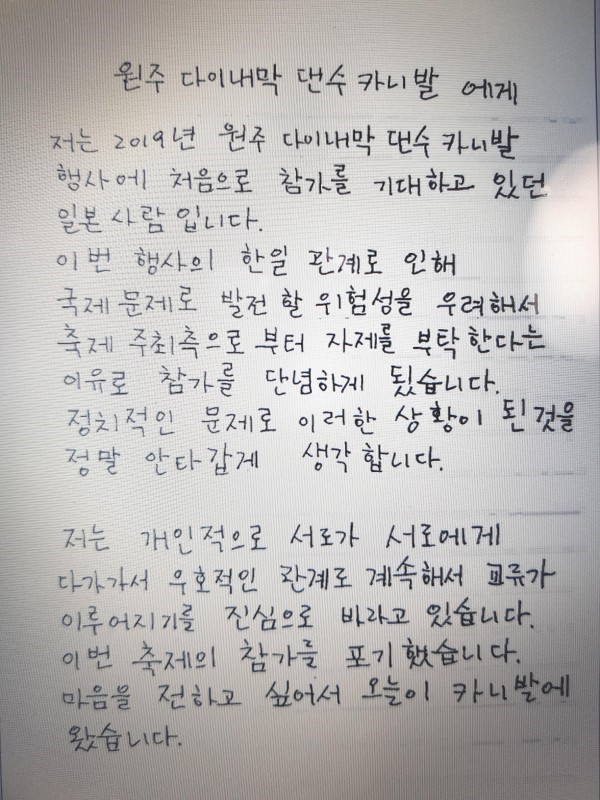 원주 다이내막 댄수 카니발 에게
저는 2019년 원주 다이내막 댄수 카니발
행사에 처음으로 참가를 기대하고 있던
일본사람입니다.
이번 행사의 한일 관계로 인해
국제문제로 발전 할 위험성을 우려해서
축제 주최측으로부터 자제를 부탁한다는
이유로 참가를 단념하게 됬습니다.
정치적인 문제로 이러한 상황이 된것을
정말 안타갑게 생각합니다.
저는 개인적으로 서로가 서로에게
다가가서 우호적인 관계로 계속해서 교류가
이루어지기를 진심으로 바라고 있습니다.
이번 축제의 참가를 포기했습니다.
마음을 전하고 싶어서 오늘이 카니발에
왔습니다.